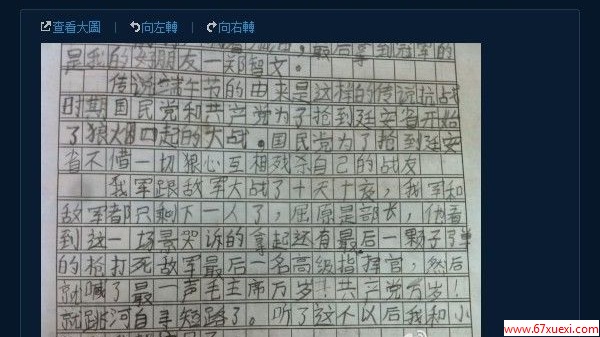 查看大圖 | 向左轉 | 向右轉
最后拿到冠军的
是我的好朋友一郑智文。
传说端午节的由来是这样的传说抗战
时期国民党和共产党为了抢到延安省开始
了狼烟四起的大战。国民党为了抢到延安
省不惜一切狠心互相残杀自己的战友
我军跟敌军大战了十天十夜，我军和
敌军都只剩下一人了，屈原是部长，他看
到这一场景哭诉的拿起还有最后一颗子弹
的枪打死敌军最后一名高级指挥官，然后
就喊了最一声毛主席万岁！共产党万岁！
就跳河自寻短路了。听了这个以后我和小
www.67xuexi.com